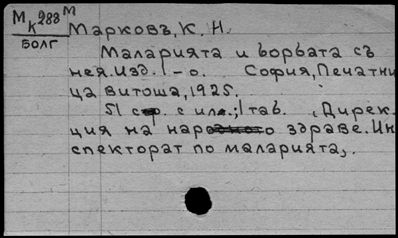 Mk288M
БОЛГ
Марковъ, К. Н.
Маларията и борбата съ
нея. Изд. 1-о. София, Печатни
ца Витоша, 1925.
51 стр. с ил.; 1 таб. (Дирек.
ция на народното здраве. Ин
спекторат по маларията).